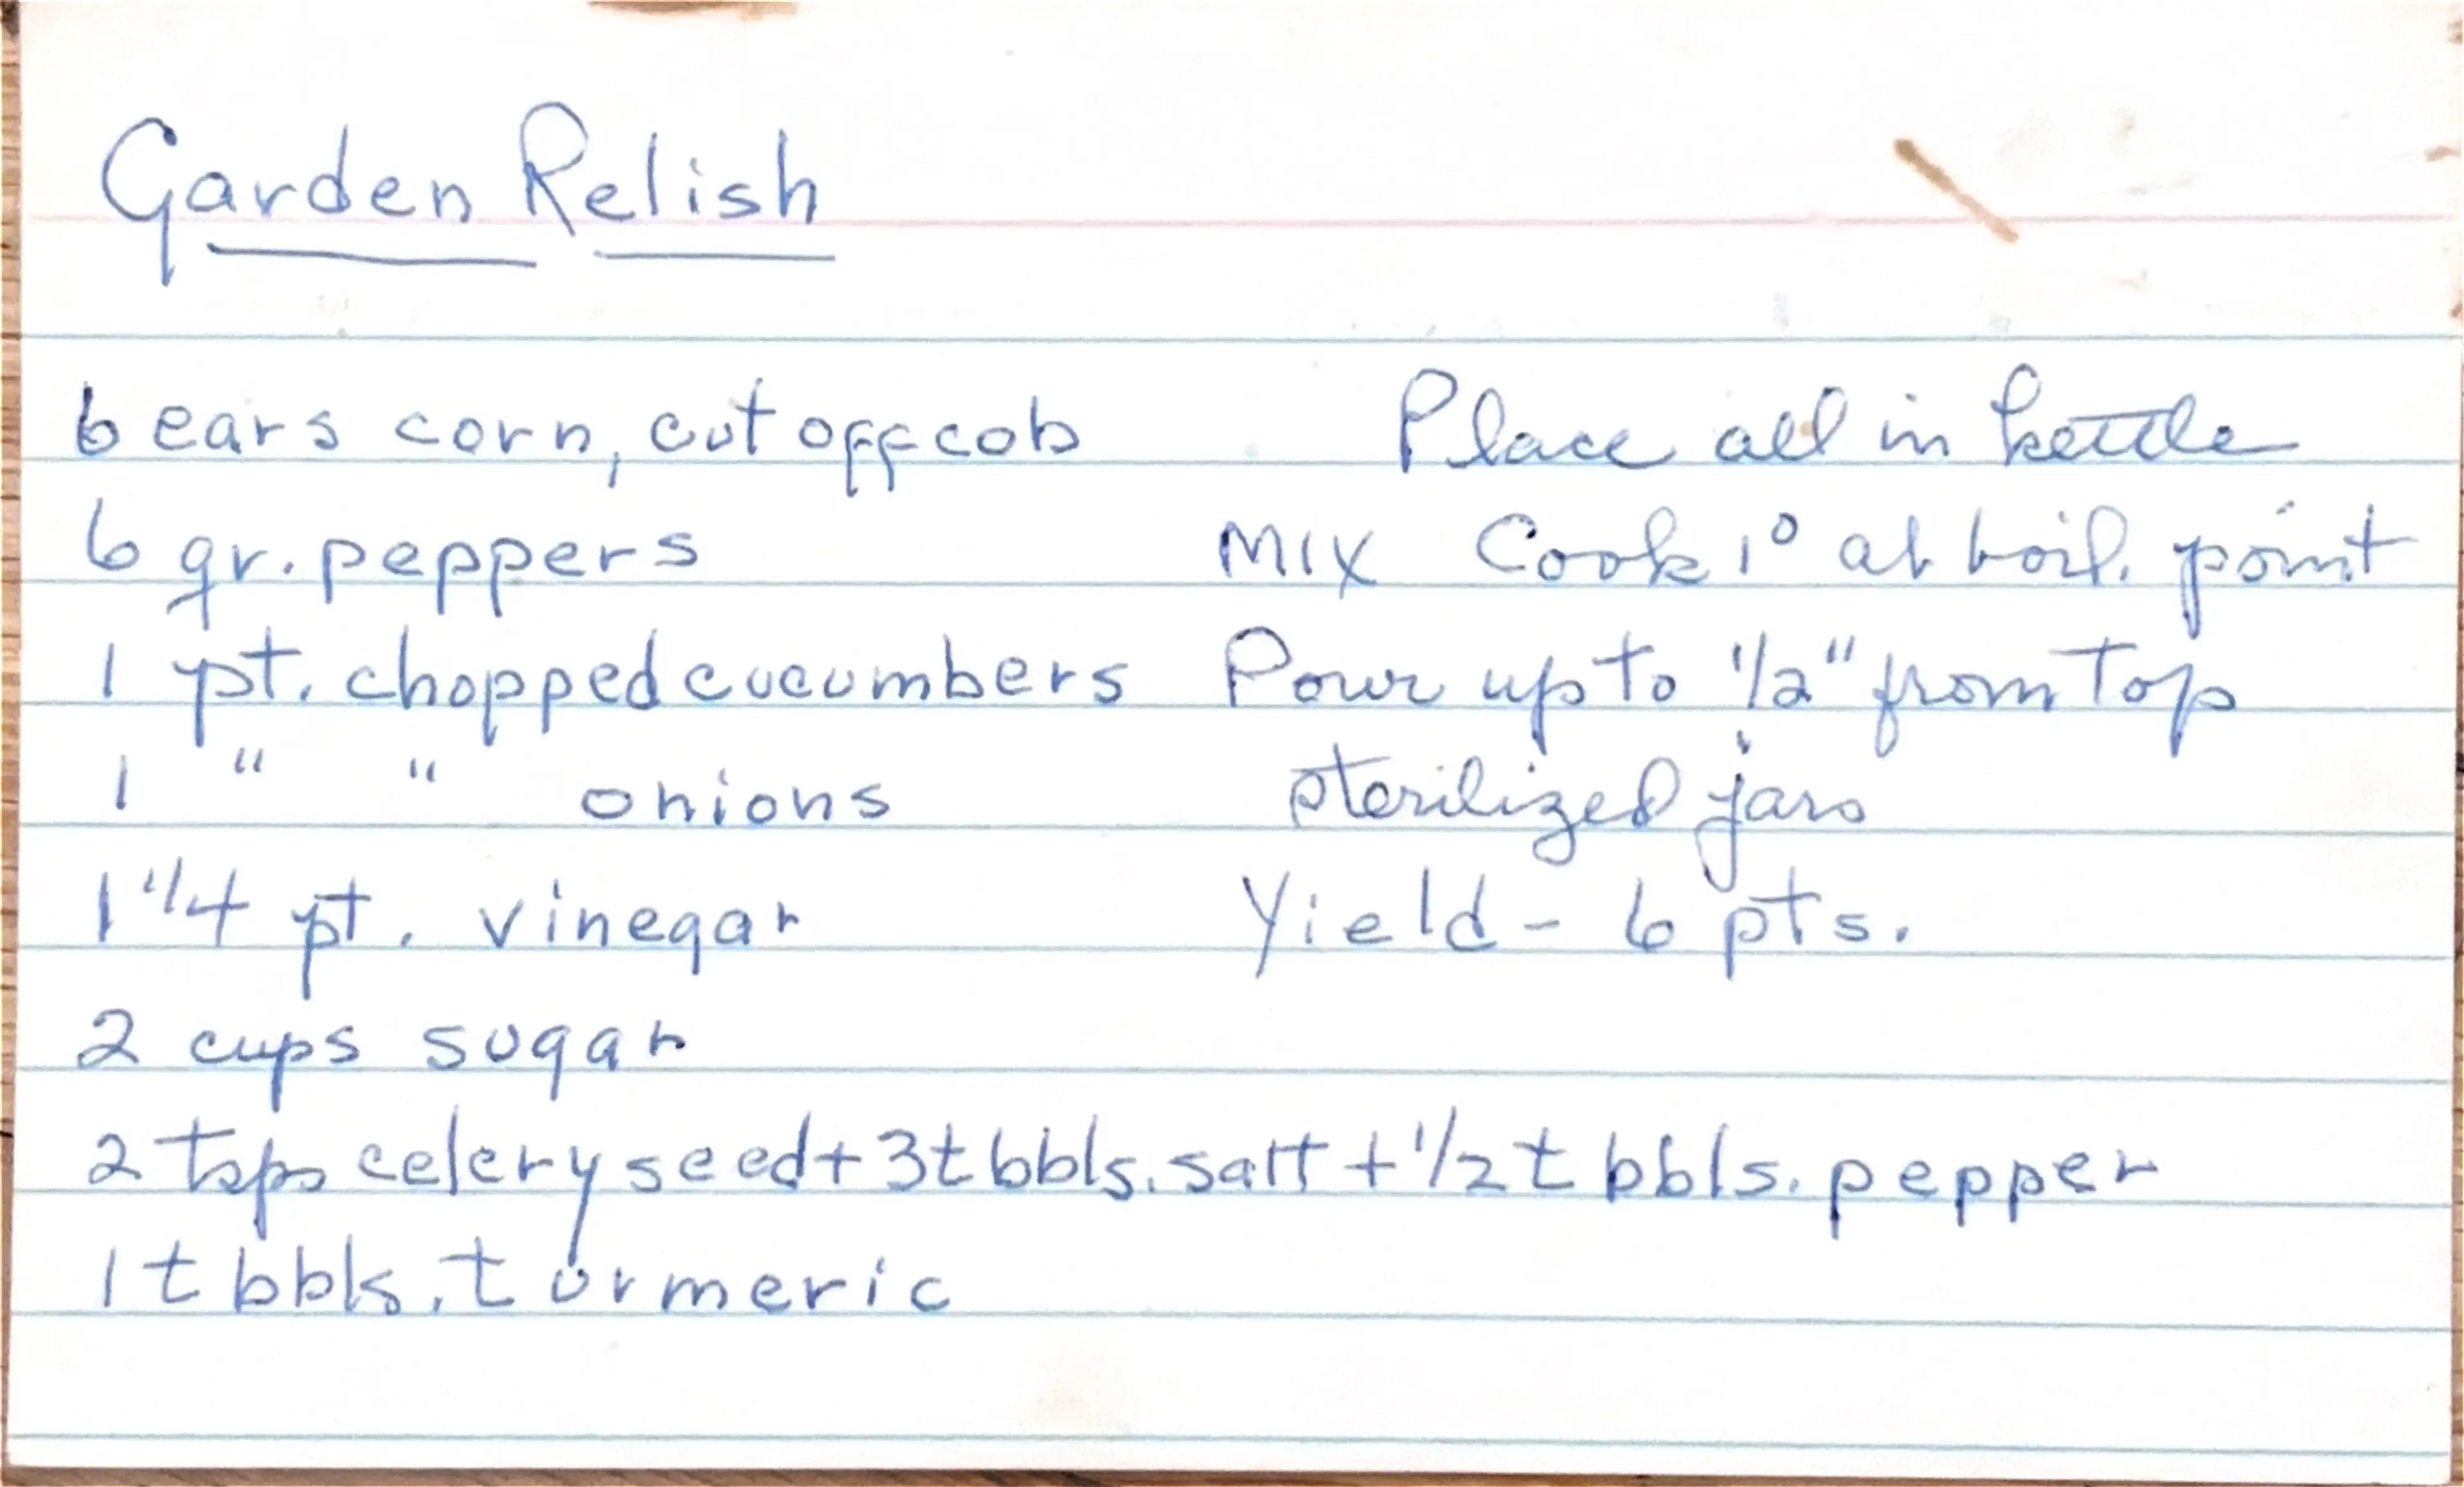 Garden Relish
6 ears corn, cut off cob
6 gr. peppers
1 pt. chopped cucumbers
1 " " onions
1 1/4 pt. vinegar
2 cups sugar
2 tsps celery seed + 3 tbbls. salt + 1/2 tbbls. pepper
1 tbbls. turmeric
Place all in kettle
MIX Cook 1° at boil. point
Pour up to 1/2" from top
sterilized jars
Yield - 6 pts.